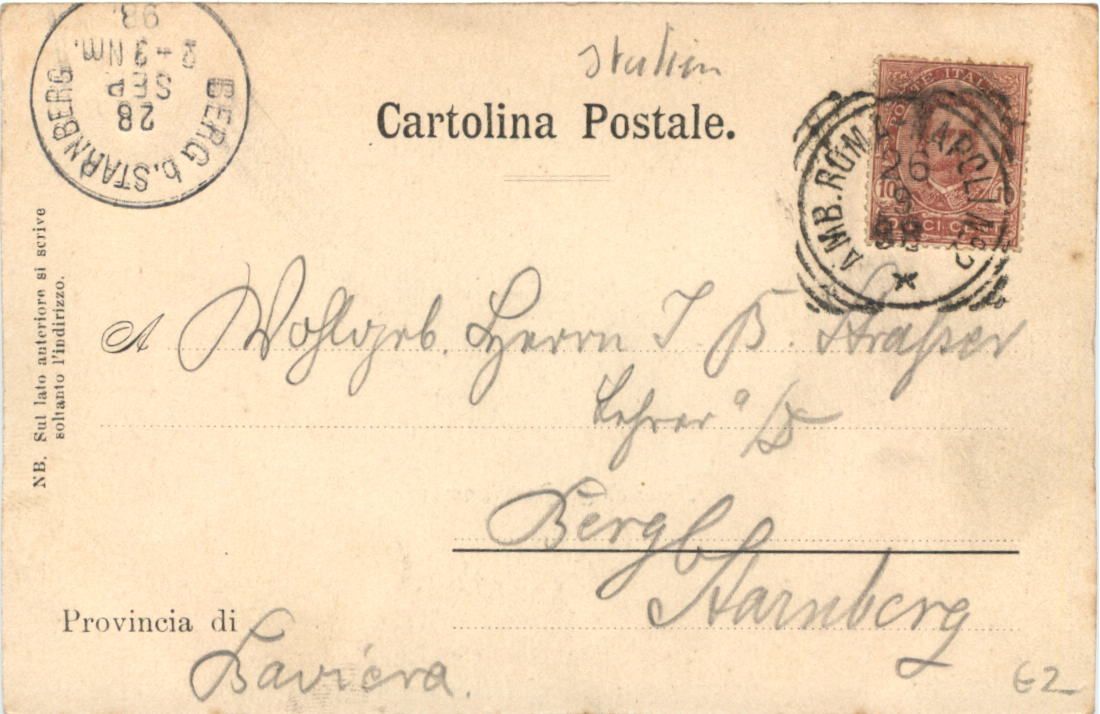 Cartolina Postale.
BERG b. STARNBERG
28
SEP.
2-3 Nm.
98.
POSTE ITAL
10
AMB. ROMA-NAPOLI Nº2
26
9
98
NB. Sul lato anteriore si scrive
soltanto l'indirizzo.
A Wohlgeb. Herrn J B. Straßer
Lehrer a/D
Berg b
Starnberg
Provincia di
Baviera.
€2